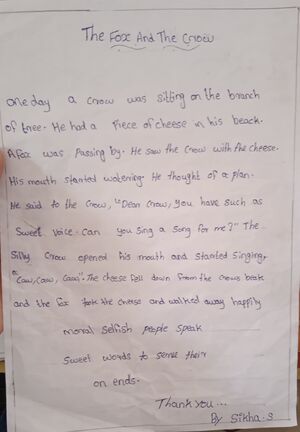 The Fox And The Crow
One day a crow was sitting on the branch
of tree. He had a Piece of cheese in his beack.
A fox was Passing by. He saw the crow with the cheese.
His mouth started watering. He thought of a plan.
He said to the crow, "Dear crow, you have such as
Sweet voice. Can you sing a song for me?" The
Silly Crow opened his mouth and started Singing,
"Caw, Caw, Caw". The cheese fell down from the crows beak
and the fox took the cheese and walked away happily
moral selfish people speak
Sweet words to serve their
on ends.
Thank you...
By Sikha.S